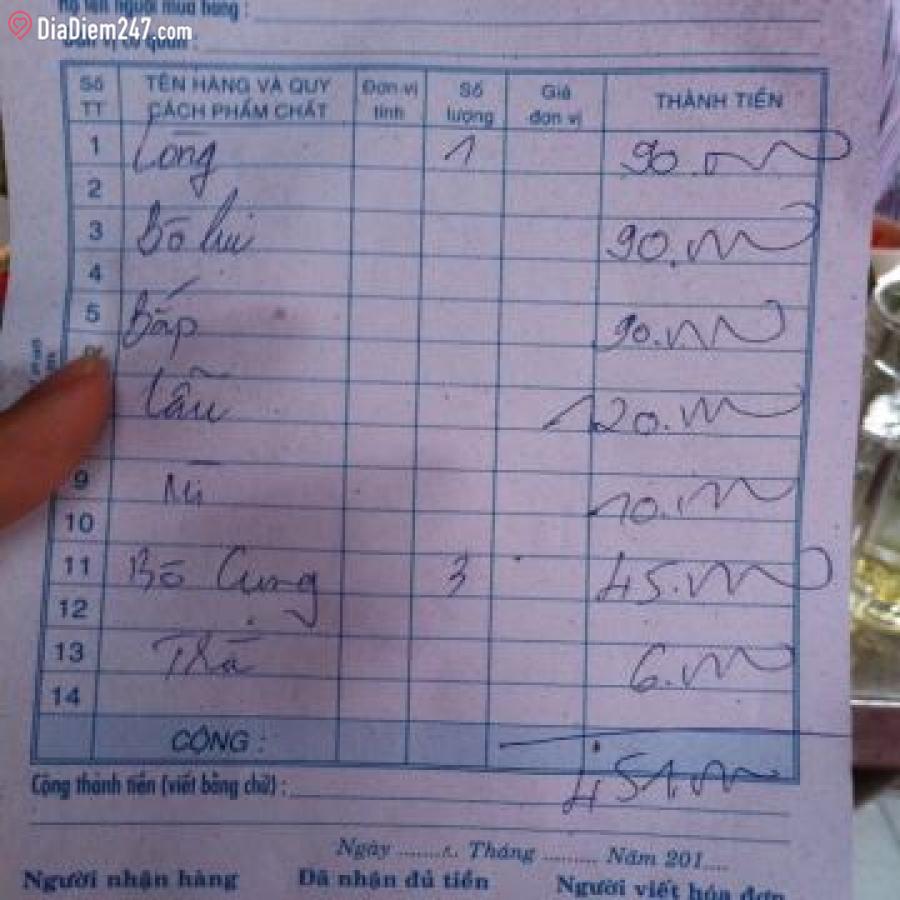 DiaDiem247.com
Họ tên người mua hàng :
Đơn vị cơ quan :
Số TT TÊN HÀNG VÀ QUY CÁCH PHẨM CHẤT Đơn vị tính Số lượng Giá đơn vị THÀNH TIỀN
1 Lòng 1 90.000
2
3 90.000
4
5 Bắp 90.000
Lẩu 120.000
9 Mì 10.000
10
11 Bò Cung 3 45.000
12
13 6.000
14
CỘNG :
451.000
Cộng thành tiền (viết bằng chữ) :
Ngày ........ Tháng ......... Năm 201....
Người nhận hàng Đã nhận đủ tiền Người viết hóa đơn